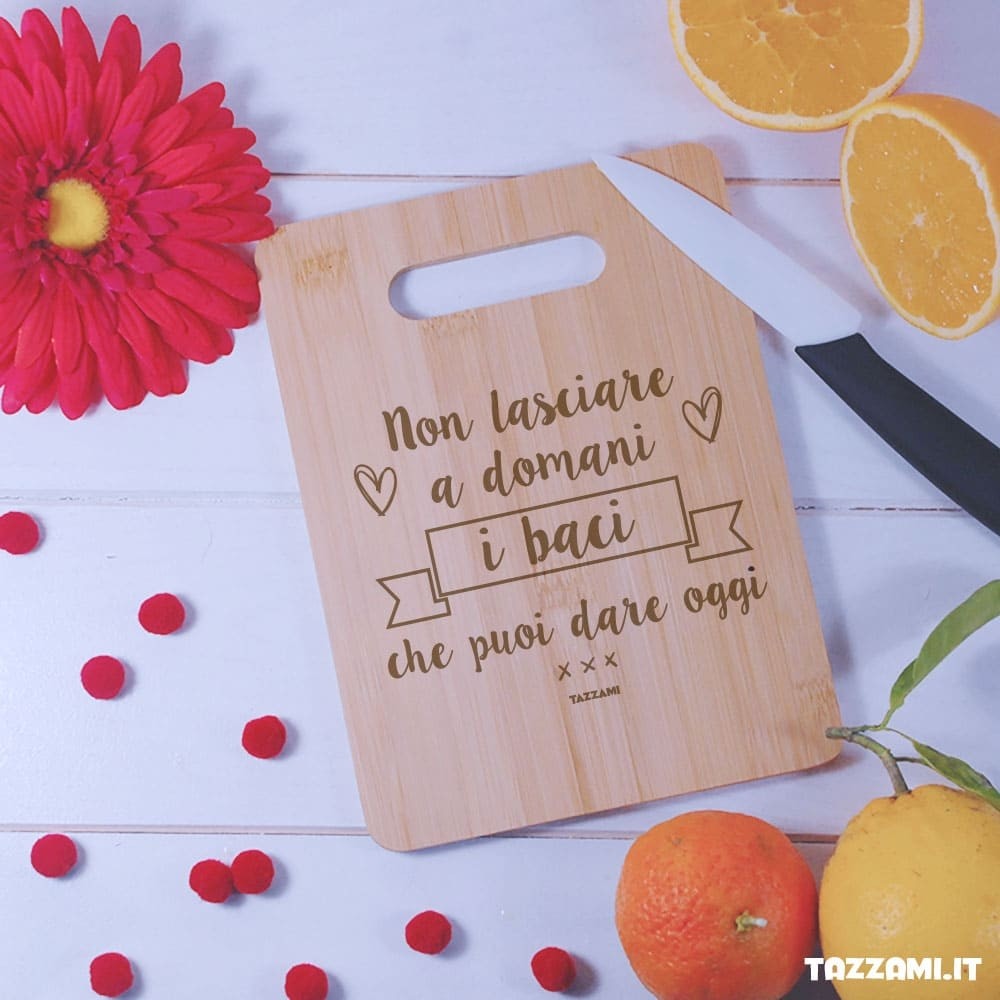 Non lasciare
a domani
i baci
che puoi dare oggi
x x x
TAZZAMI
TAZZAMI.IT